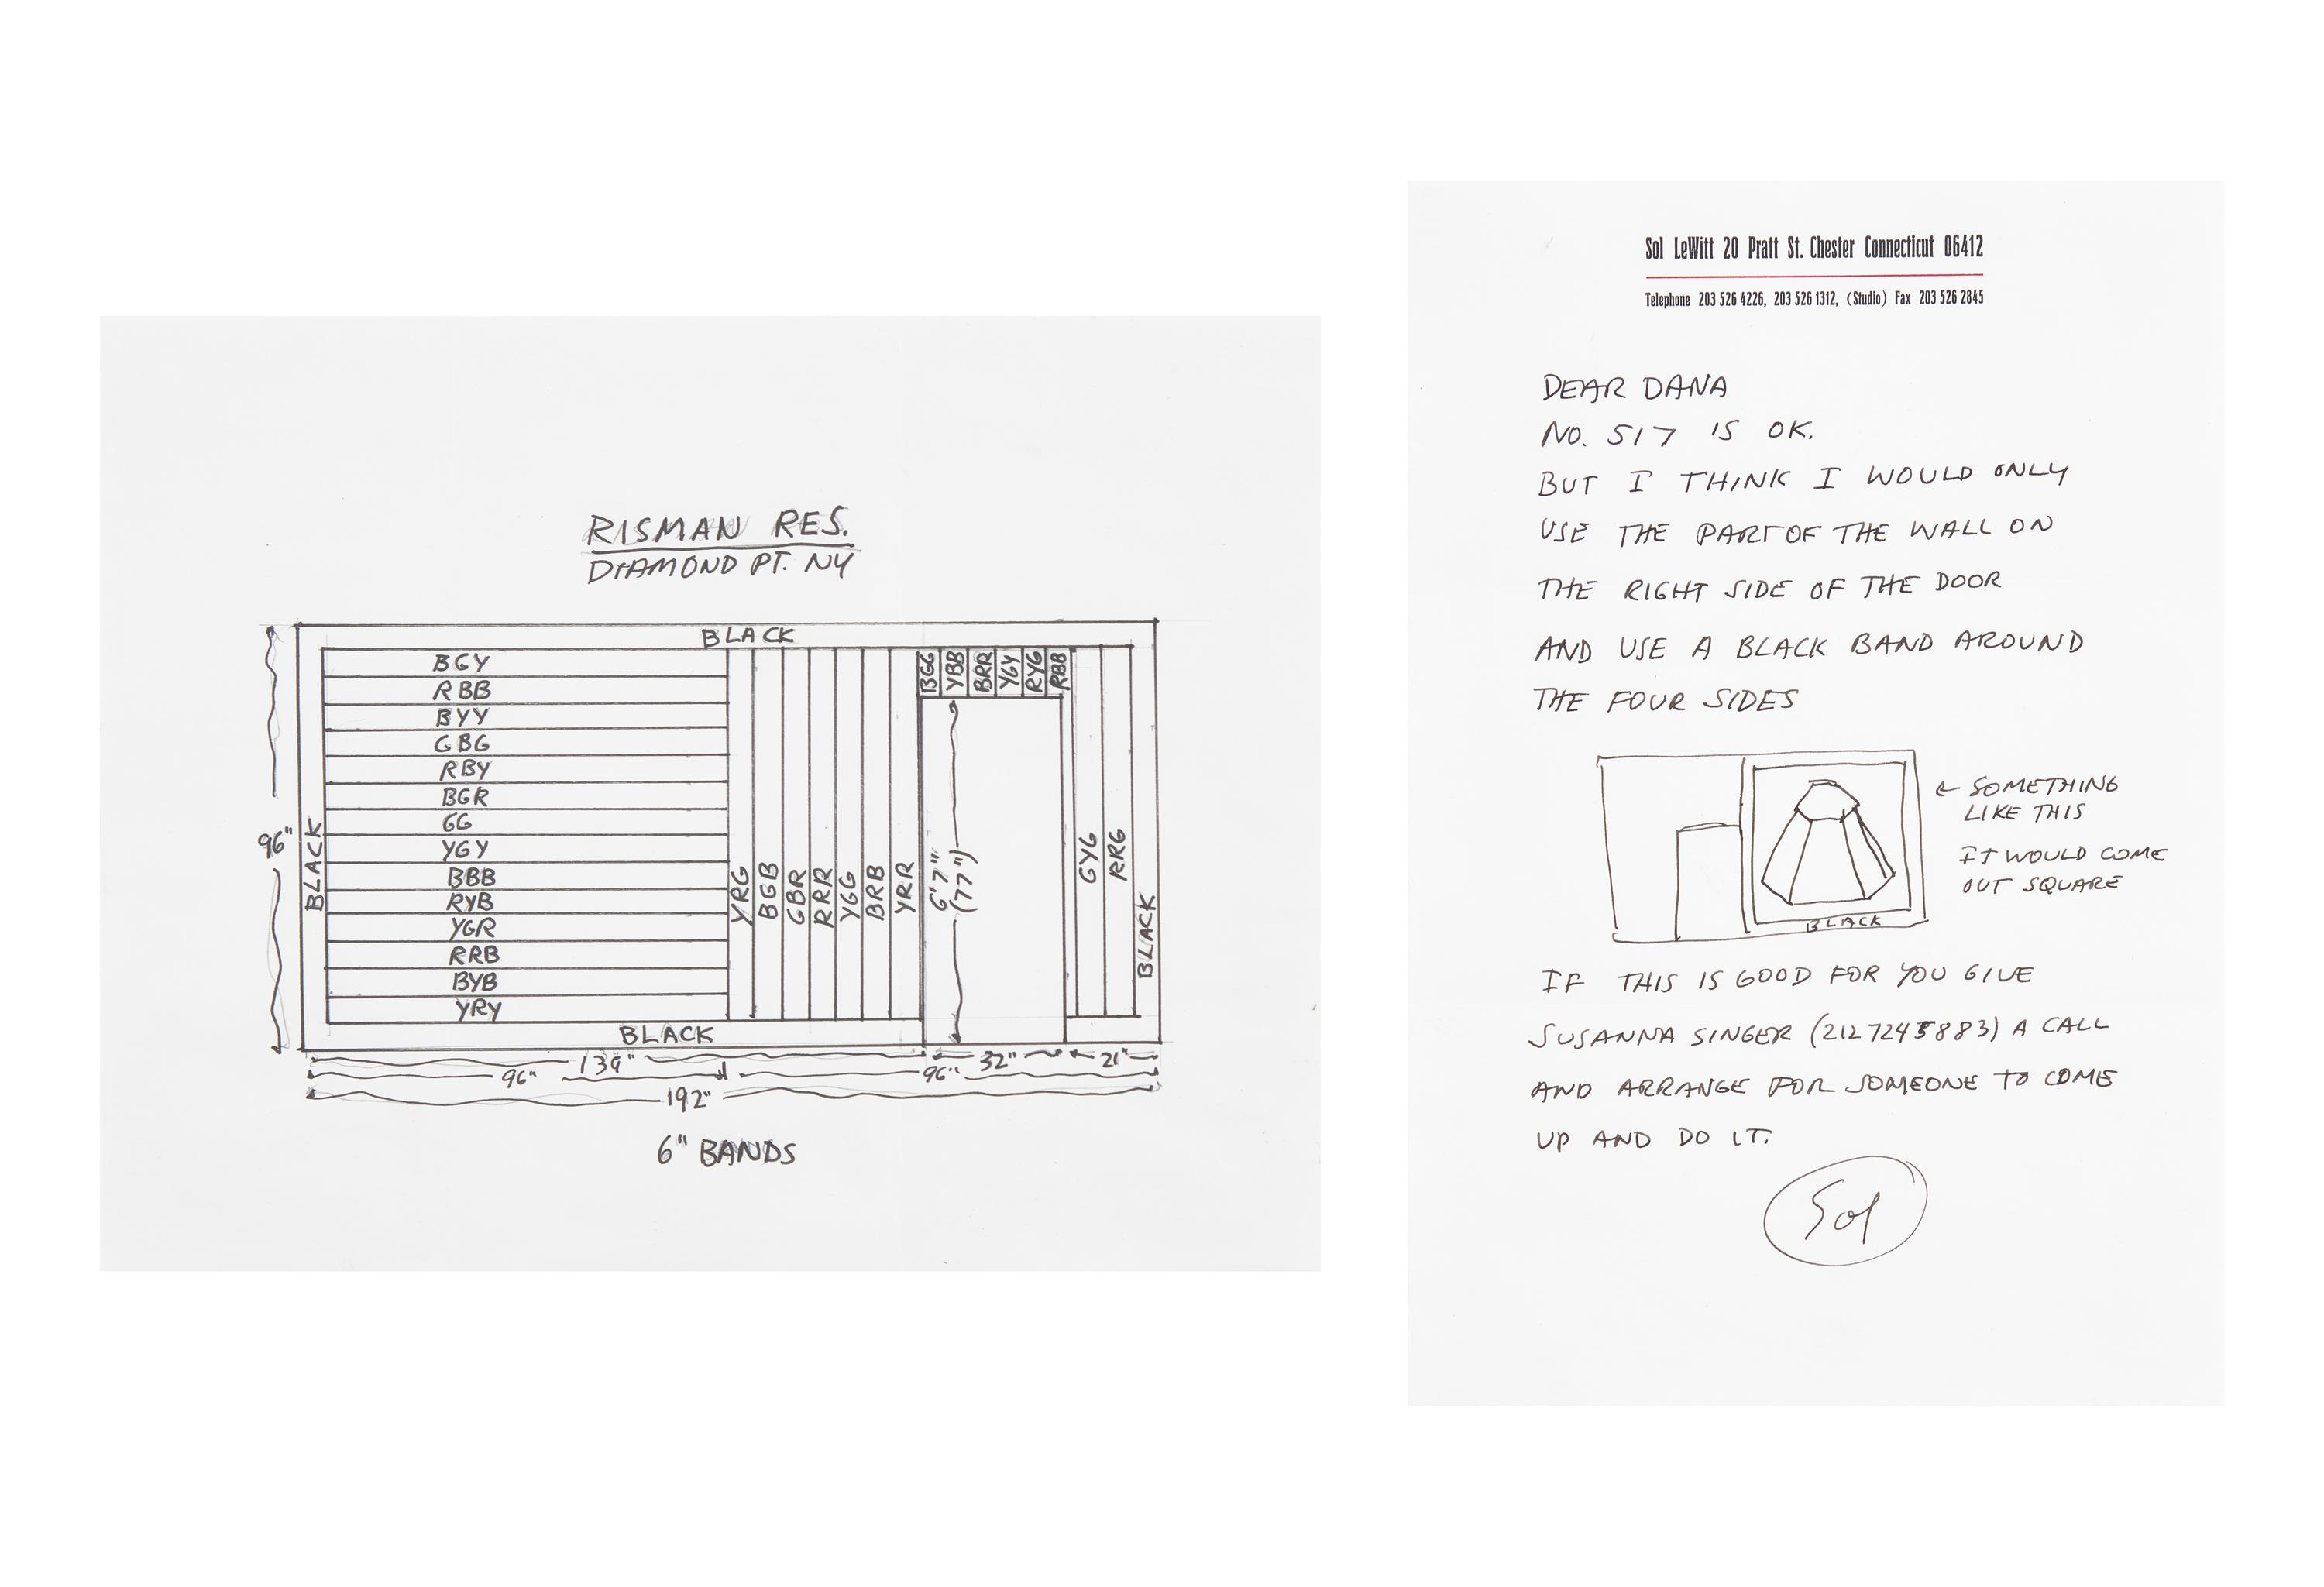 RISMAN RES.
DIAMOND PT. NY
BLACK
BGY
RBB
BYY
GBG
RBY
BGR
GG
YGY
BBB
RYB
YGR
RRB
BYB
YRY
BLACK
96"
YRG
BGB
GBR
RRR
YGG
BRB
YRR
BGG
YBB
BRR
YGY
RYG
RBB
6'7"
(77")
GYG
RRG
BLACK
BLACK
139" 32" 21"
96" 96"
192"
6" BANDS
Sol LeWitt 20 Pratt St. Chester Connecticut 06412
Telephone 203 526 4226, 203 526 1312, (Studio) Fax 203 526 2845
DEAR DANA
NO. 517 IS OK.
BUT I THINK I WOULD ONLY
USE THE PART OF THE WALL ON
THE RIGHT SIDE OF THE DOOR
AND USE A BLACK BAND AROUND
THE FOUR SIDES
← SOMETHING
LIKE THIS
IT WOULD COME
OUT SQUARE
BLACK
IF THIS IS GOOD FOR YOU GIVE
SUSANNA SINGER (212 724 5883) A CALL
AND ARRANGE FOR SOMEONE TO COME
UP AND DO IT.
Sol